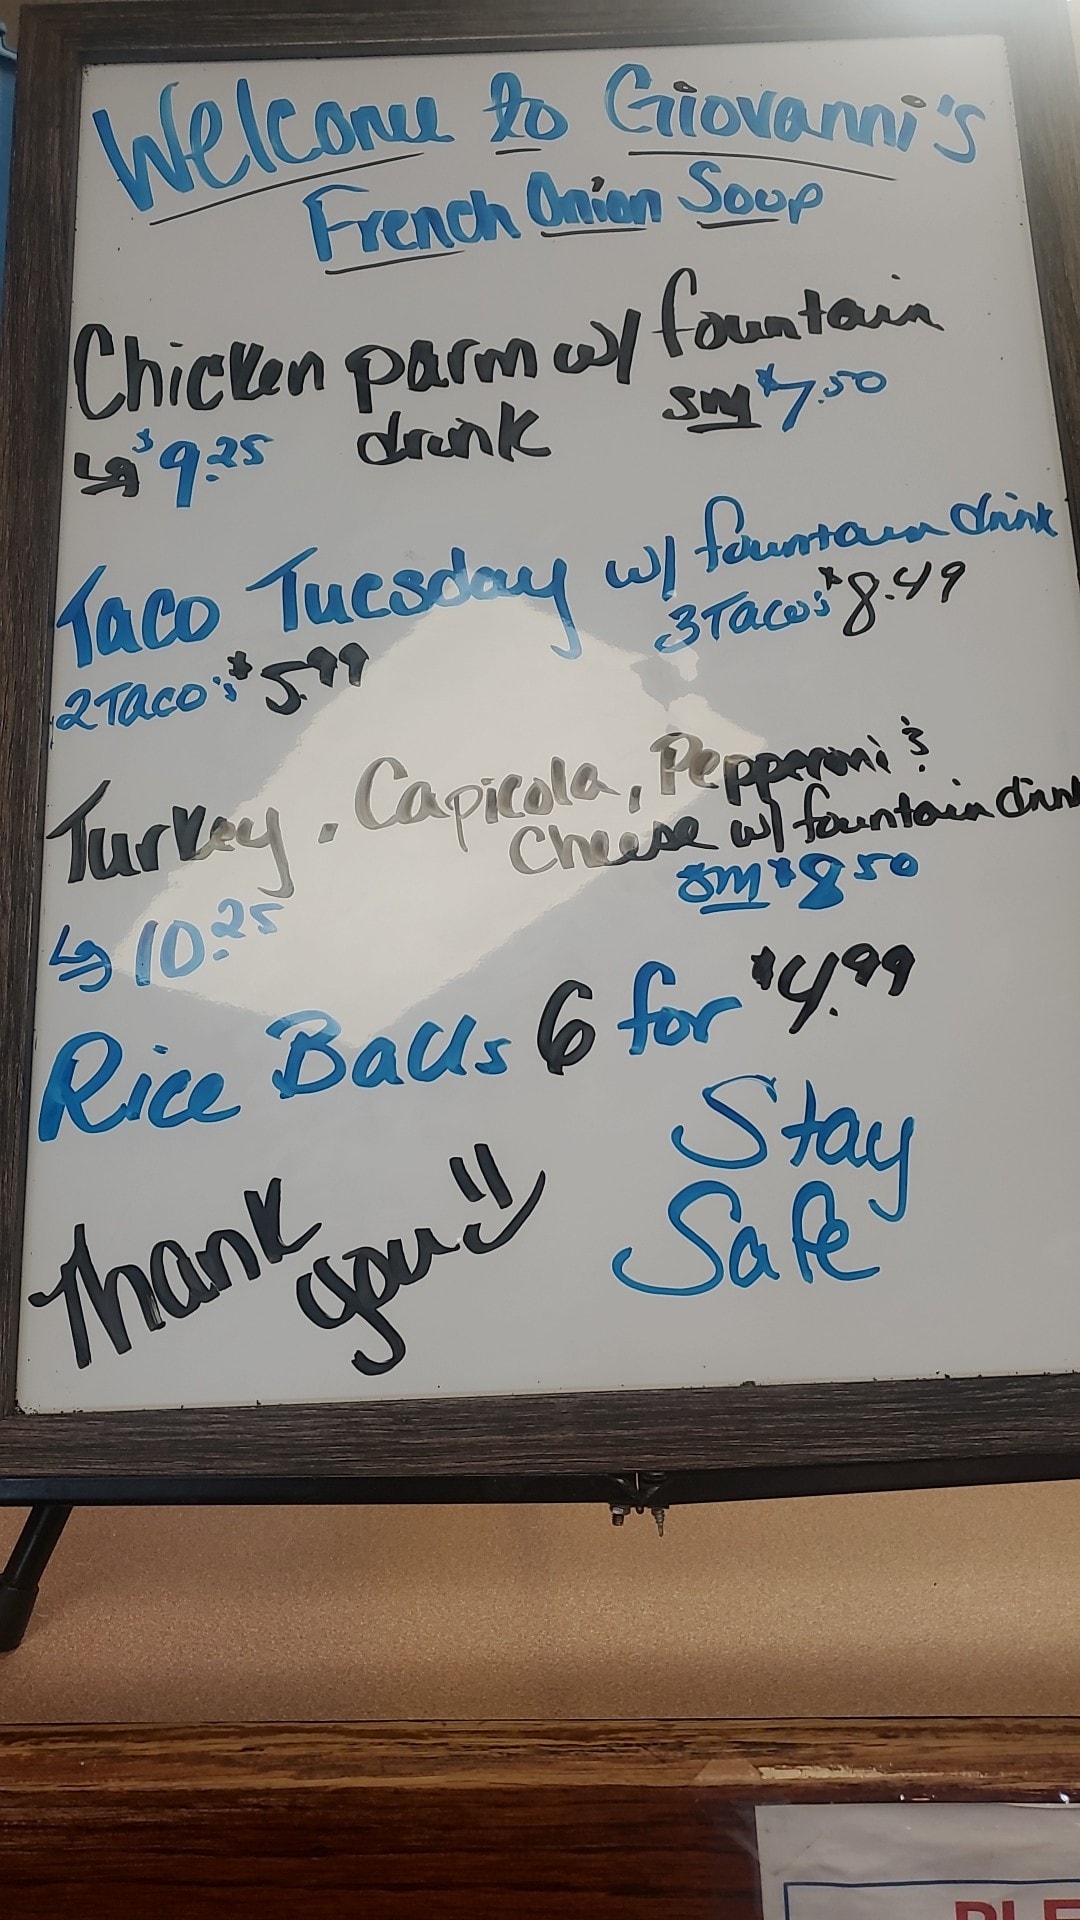 Welcome to Giovanni's
French Onion Soup
Chicken parm w/ fountain
drink
↳ $9.25
sm $7.50
Taco Tuesday w/ fountain drink
2 Taco's $5.99
3 Taco's $8.49
Turkey, Capicola, Pepperoni &
Cheese w/ fountain drink
↳ 10.25
sm $8.50
Rice Balls 6 for $4.99
Thank
you :)
Stay
Safe
PLE